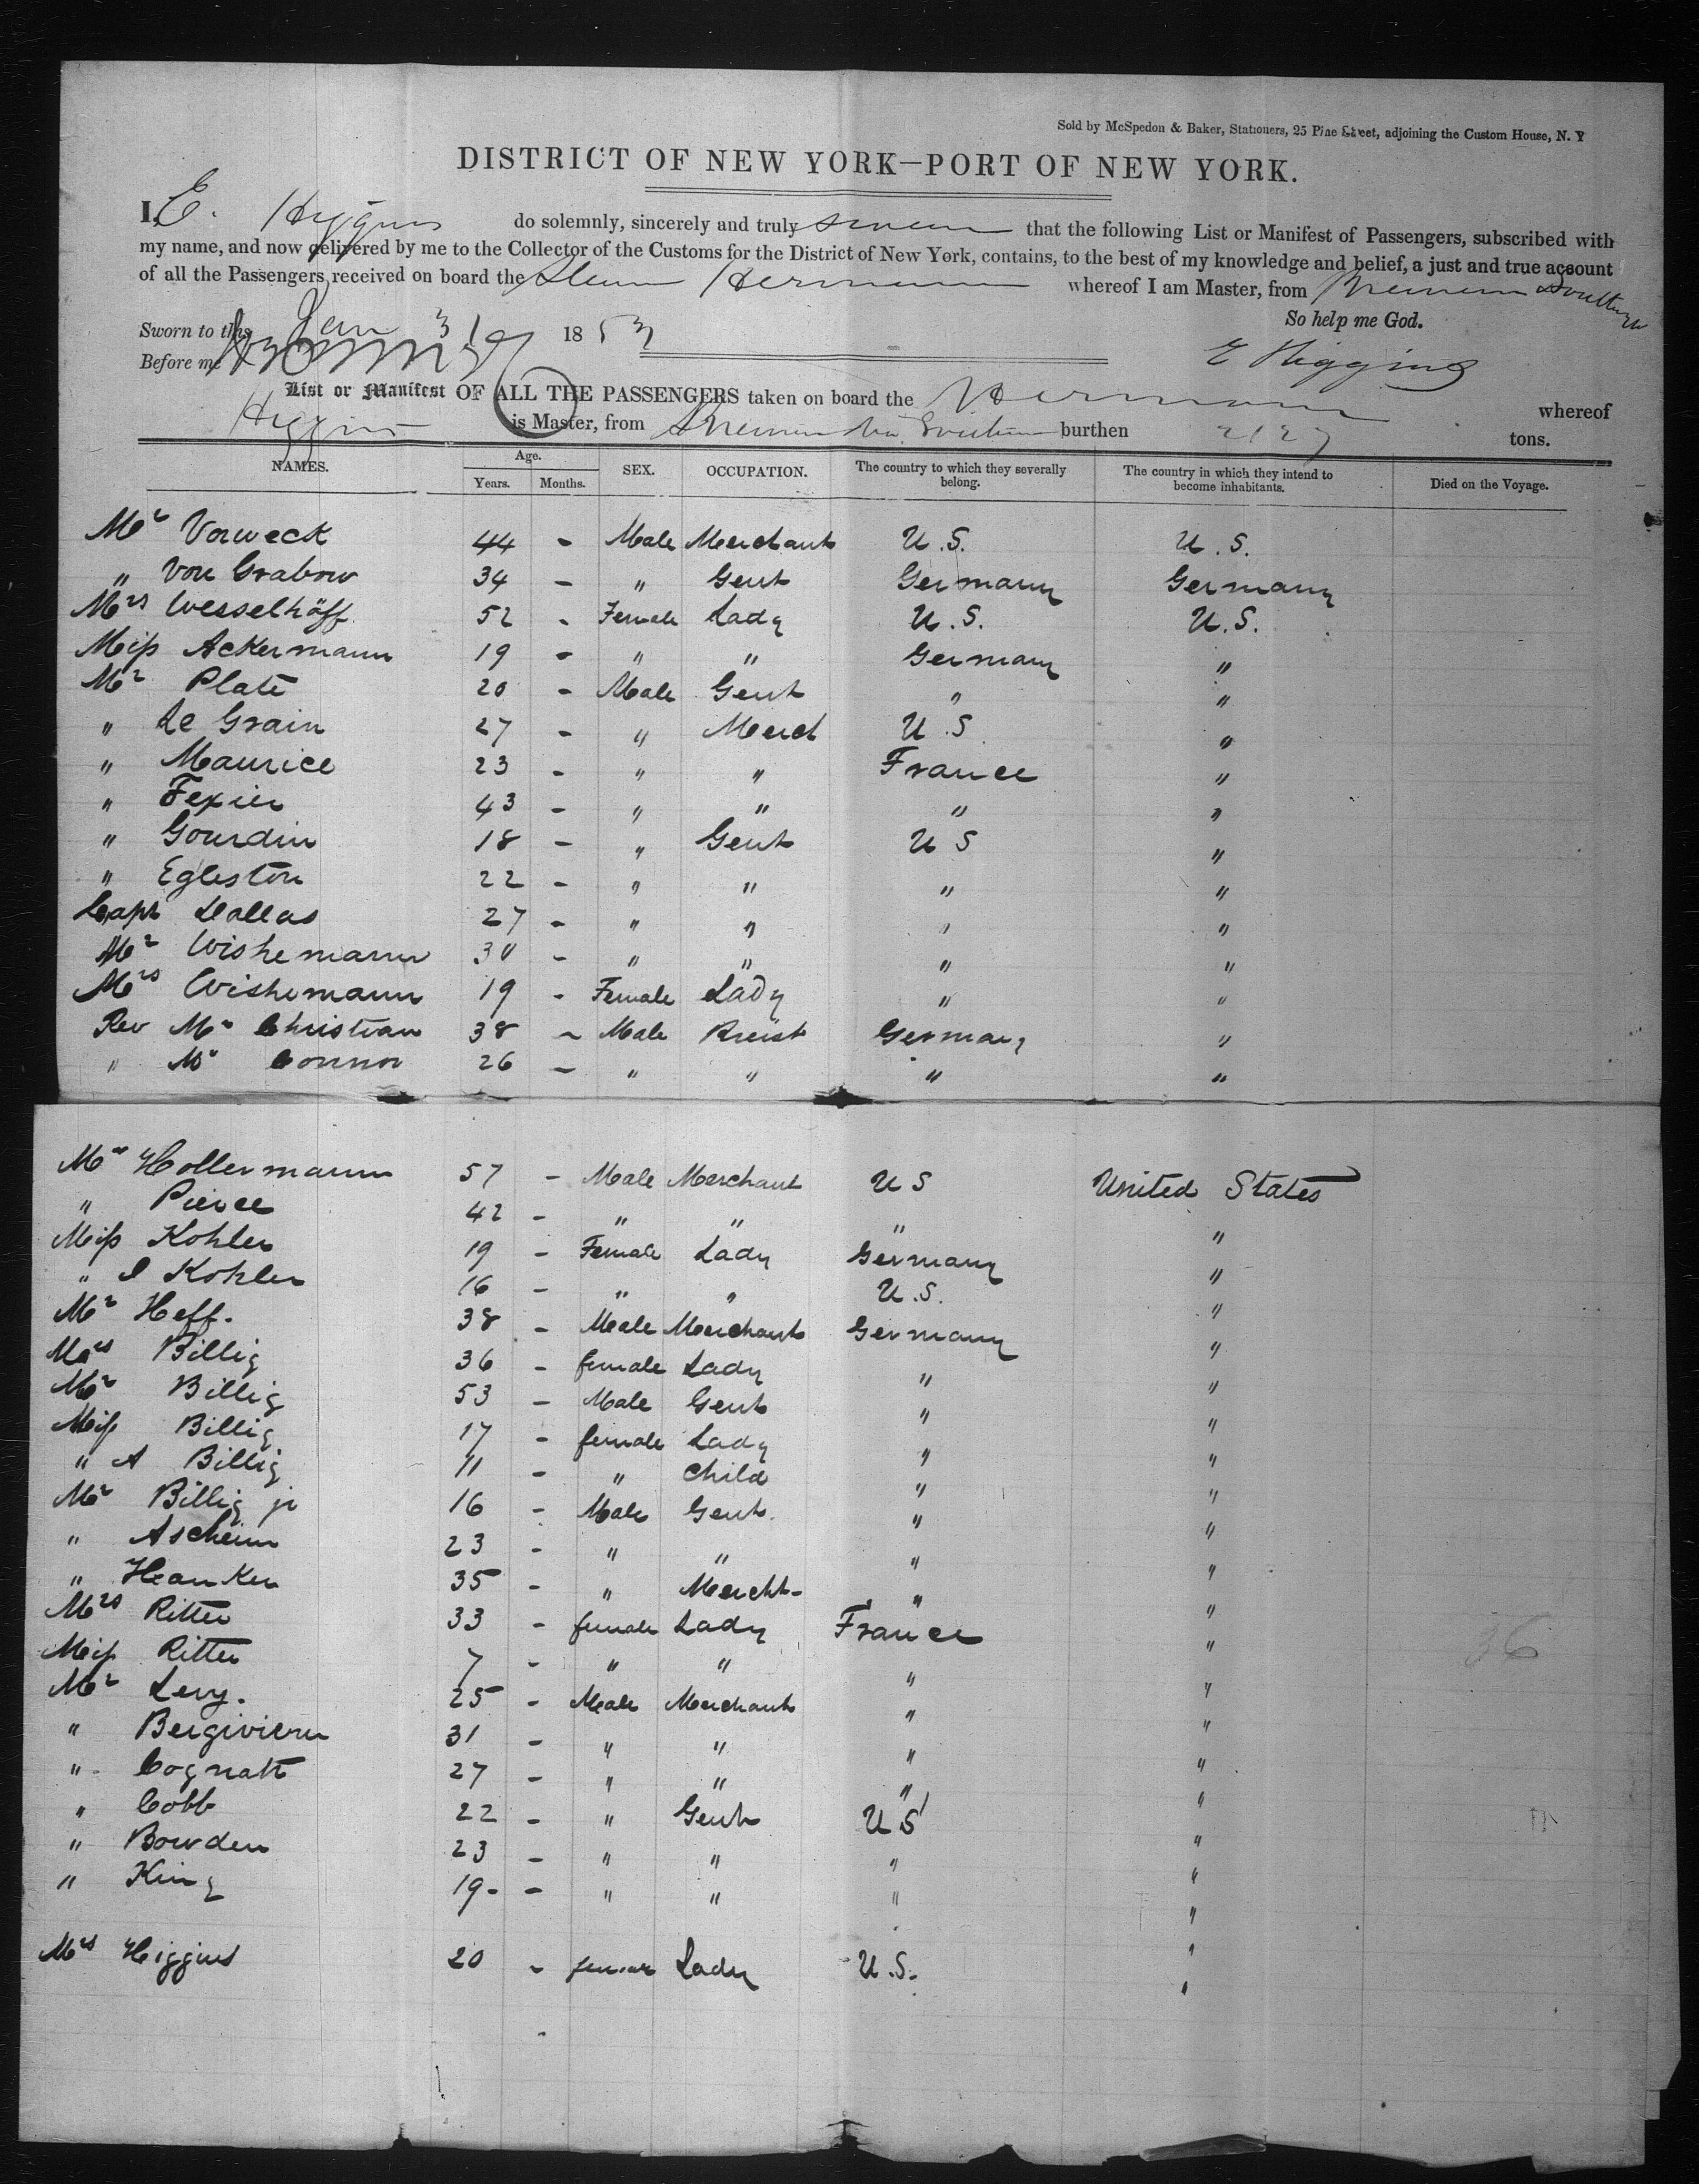 Sold by McSpedon & Baker, Stationers, 25 Pine Street, adjoining the Custom House, N. Y
DISTRICT OF NEW YORK—PORT OF NEW YORK.
I, E. Higgins do solemnly, sincerely and truly swear that the following List or Manifest of Passengers, subscribed with
my name, and now delivered by me to the Collector of the Customs for the District of New York, contains, to the best of my knowledge and belief, a just and true account
of all the Passengers received on board the Steam Hermann whereof I am Master, from Bremen
So help me God.
Sworn to this Jan 31 1853
Before me
E Higgins
List or Manifest OF ALL THE PASSENGERS taken on board the Hermann whereof
Higgins is Master, from Bremen via burthen 2127 tons.
NAMES. Age. Years. Months. SEX. OCCUPATION. The country to which they severally belong. The country in which they intend to become inhabitants. Died on the Voyage.
Mr Vorweck 44 - Male Merchant U.S. U.S.
" Von Grabow 34 - " Gent Germany Germany
Mrs Wesselhöff 52 - Female Lady U.S. U.S.
Miss Ackermann 19 - " " Germany "
Mr Plate 20 - Male Gent " "
" Le Grain 27 - " Merct U.S. "
" Maurice 23 - " " France "
" Texier 43 - " " " "
" Gourdin 18 - " Gent U S "
" Egleston 22 - " " " "
Capt Dallas 27 - " " " "
Mr Wishemann 30 - " " " "
Mrs Wishemann 19 - Female Lady " "
Rev Mr Christian 38 - Male Preist Germany "
" Mr Connor 26 - " " " "
Mr Hollermann 57 - Male Merchant U S United States
" Pierce 42 - " " " "
Miss Kohler 19 - Female Lady Germany "
" I Kohler 16 - " " U.S. "
Mr Heff. 38 - Male Merchant Germany "
Mrs Billig 36 - female Lady " "
Mr Billig 53 - Male Gent " "
Miss Billig 17 - female Lady " "
" A Billig 11 - " Child " "
Mr Billig jr 16 - Male Gent. " "
" Ascheim 23 - " " " "
" Hanken 35 - " Mercht- " "
Mrs Ritter 33 - female Lady France "
Miss Ritter 7 - " " " "
36
Mr Levy. 25 - Male Merchant " "
" Bergivieru 31 - " " " "
" Cognatt 27 - " " " "
" Cobb 22 - " Gent U S "
" Bowden 23 - " " " "
" King 19 - - " " " "
Mrs Higgins 20 - female Lady U.S. "